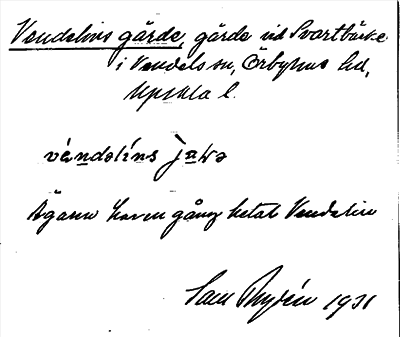 Vendelins gärde, gärde vid Svartbäcke
i Vendels sn, Örbyhus hd,
Uppsala l.
véndelíns
Ägaren har en gång hetat Vendelin
Sam Rydén 1931